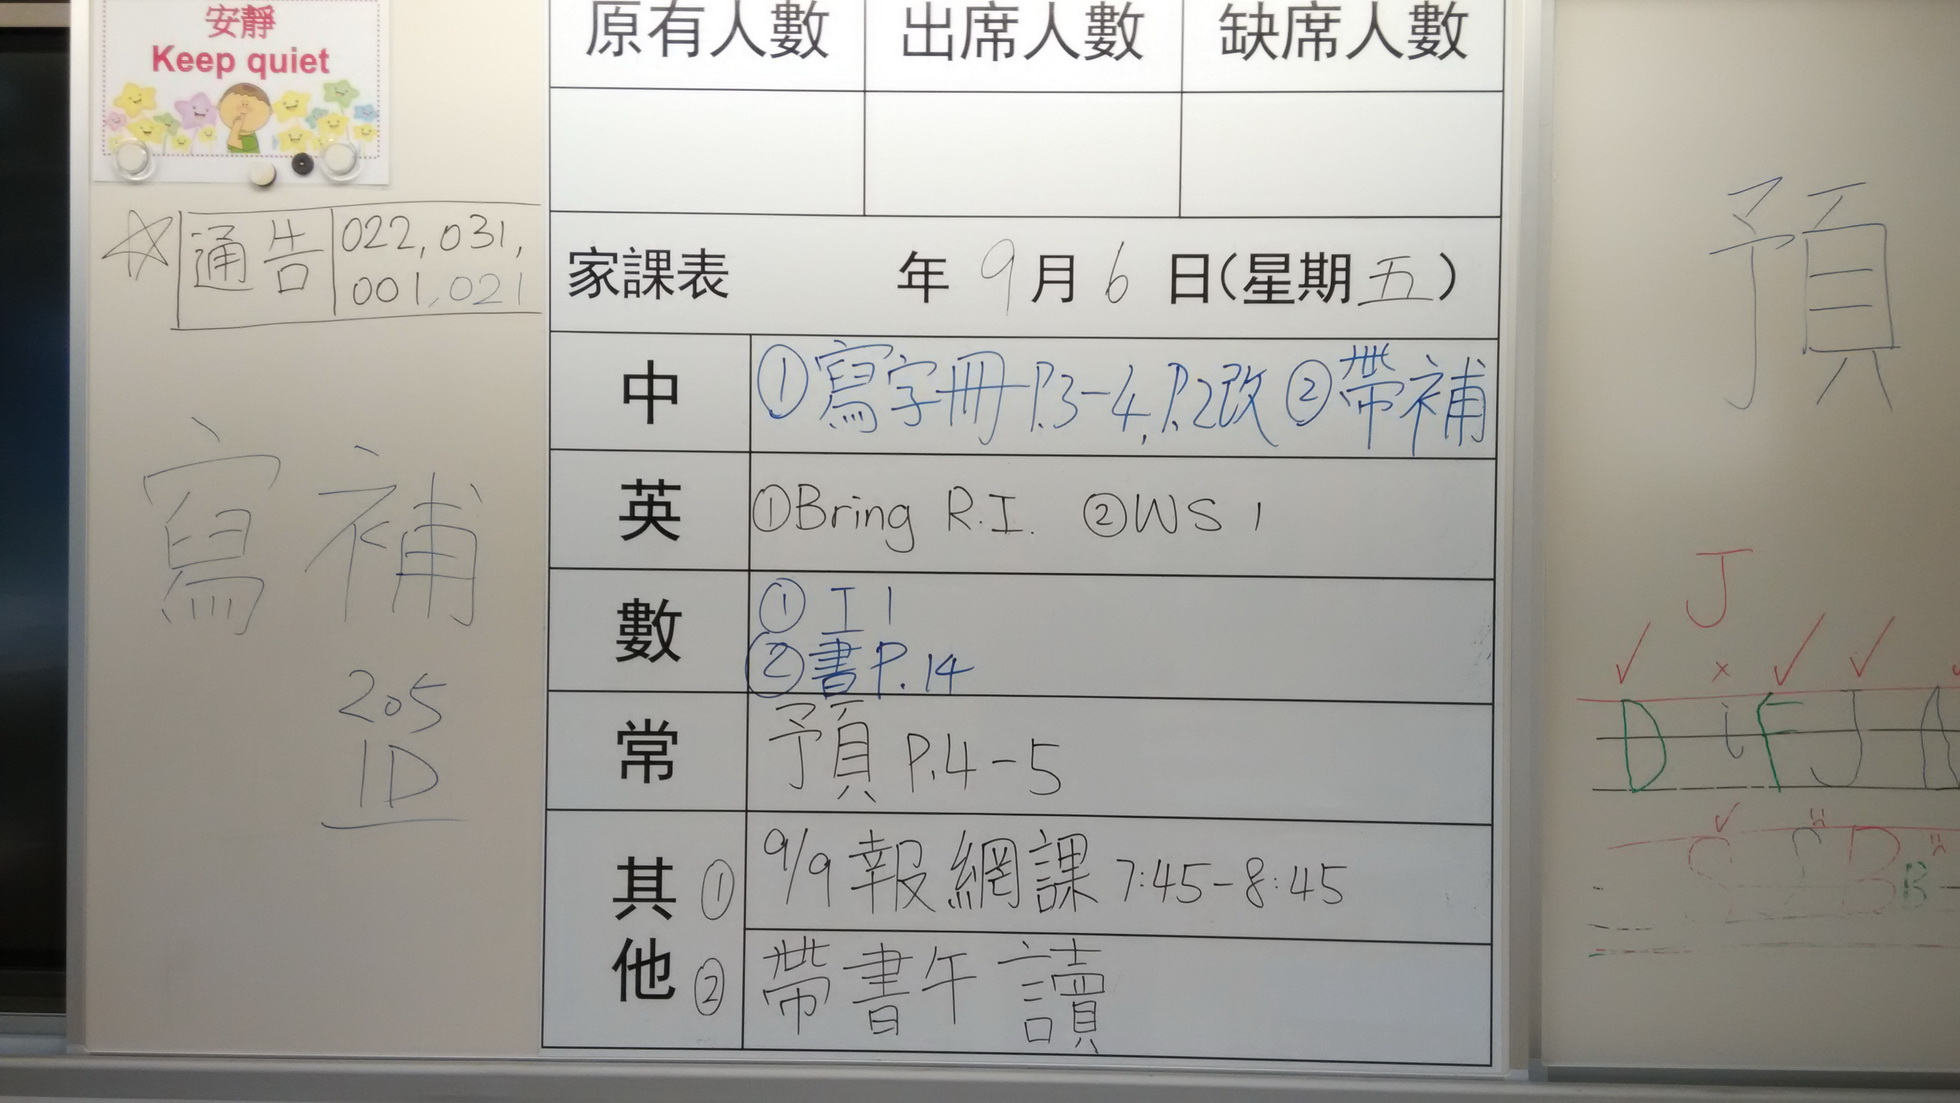 安靜
Keep quiet
通告 022, 031,
001, 021
寫補
205
1D
原有人數 出席人數 缺席人數
家課表 年 9月6日(星期五)
中 ①寫字冊P.3-4, P.2改 ②帶補
英 ①Bring R.I. ②WS 1
數 ① 工1
②書P.14
常 預 P.4-5
其他 ① 9/9 報網課 7:45-8:45
② 帶書午讀
預
J
D i F J
B